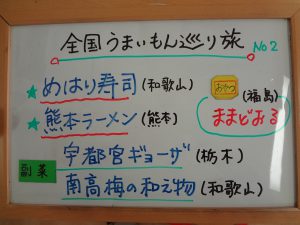 全国うまいもん巡り旅 No2
★めはり寿司(和歌山)
★熊本ラーメン(熊本)
宇都宮ギョーザ(栃木)
副菜
南高梅の和え物(和歌山)
おやつ
(福島)
ままどおる